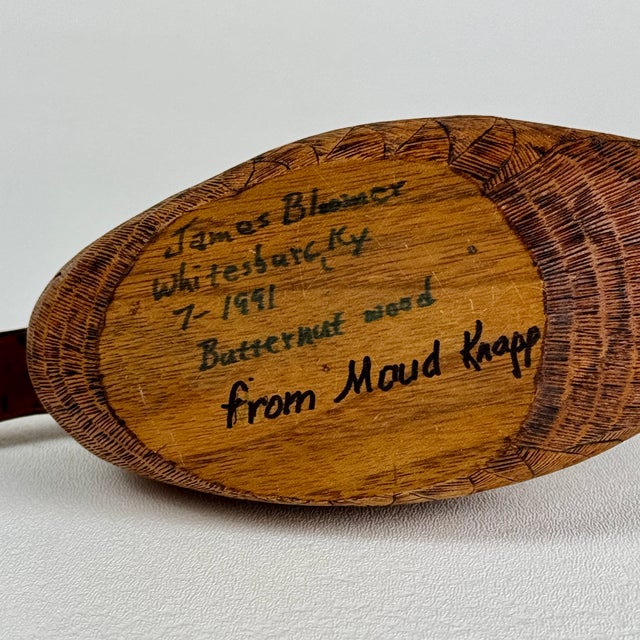 James Bloomer
Whitesburg, Ky
7-1991
Butternut wood
from Maud Knapp